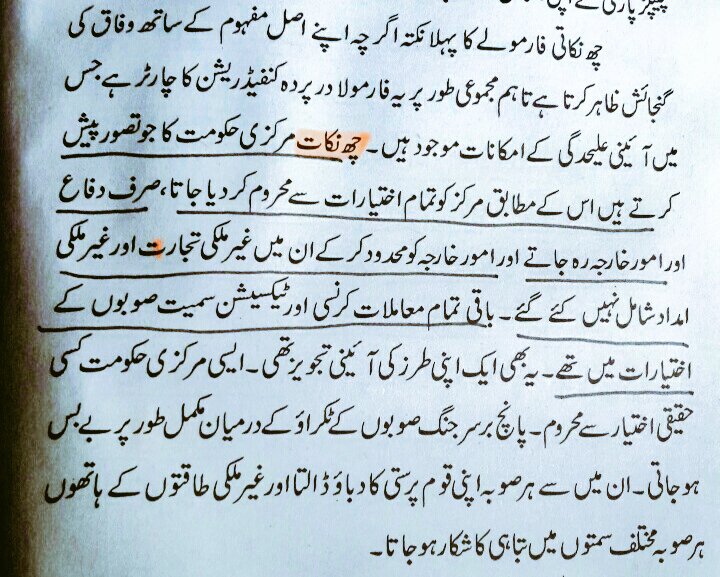 پیپلز پارٹی کے
چھ نکاتی فارمولے کا پہلا نکتہ اگرچہ اپنے اصل مفہوم کے ساتھ وفاق کی
گنجائش ظاہر کرتا ہے تاہم مجموعی طور پر یہ فارمولا در پردہ کنفیڈریشن کا چارٹر ہے جس
میں آئینی علیحدگی کے امکانات موجود ہیں۔ چھ نکات مرکزی حکومت کا جو تصور پیش
کرتے ہیں اس کے مطابق مرکز کو تمام اختیارات سے محروم کر دیا جاتا، صرف دفاع
اور امور خارجہ رہ جاتے اور امور خارجہ کو محدود کر کے ان میں غیر ملکی تجارت اور غیر ملکی
امداد شامل نہیں کئے گئے۔ باقی تمام معاملات کرنسی اور ٹیکسیشن سمیت صوبوں کے
اختیارات میں تھے۔ یہ بھی ایک اپنی طرز کی آئینی تجویز تھی۔ ایسی مرکزی حکومت کسی
حقیقی اختیار سے محروم۔ پانچ برسر جنگ صوبوں کے ٹکراؤ کے درمیان مکمل طور پر بے بس
ہو جاتی۔ ان میں سے ہر صوبہ اپنی قوم پرستی کا دباؤ ڈالتا اور غیر ملکی طاقتوں کے ہاتھوں
ہر صوبہ مختلف سمتوں میں تباہی کا شکار ہو جاتا۔